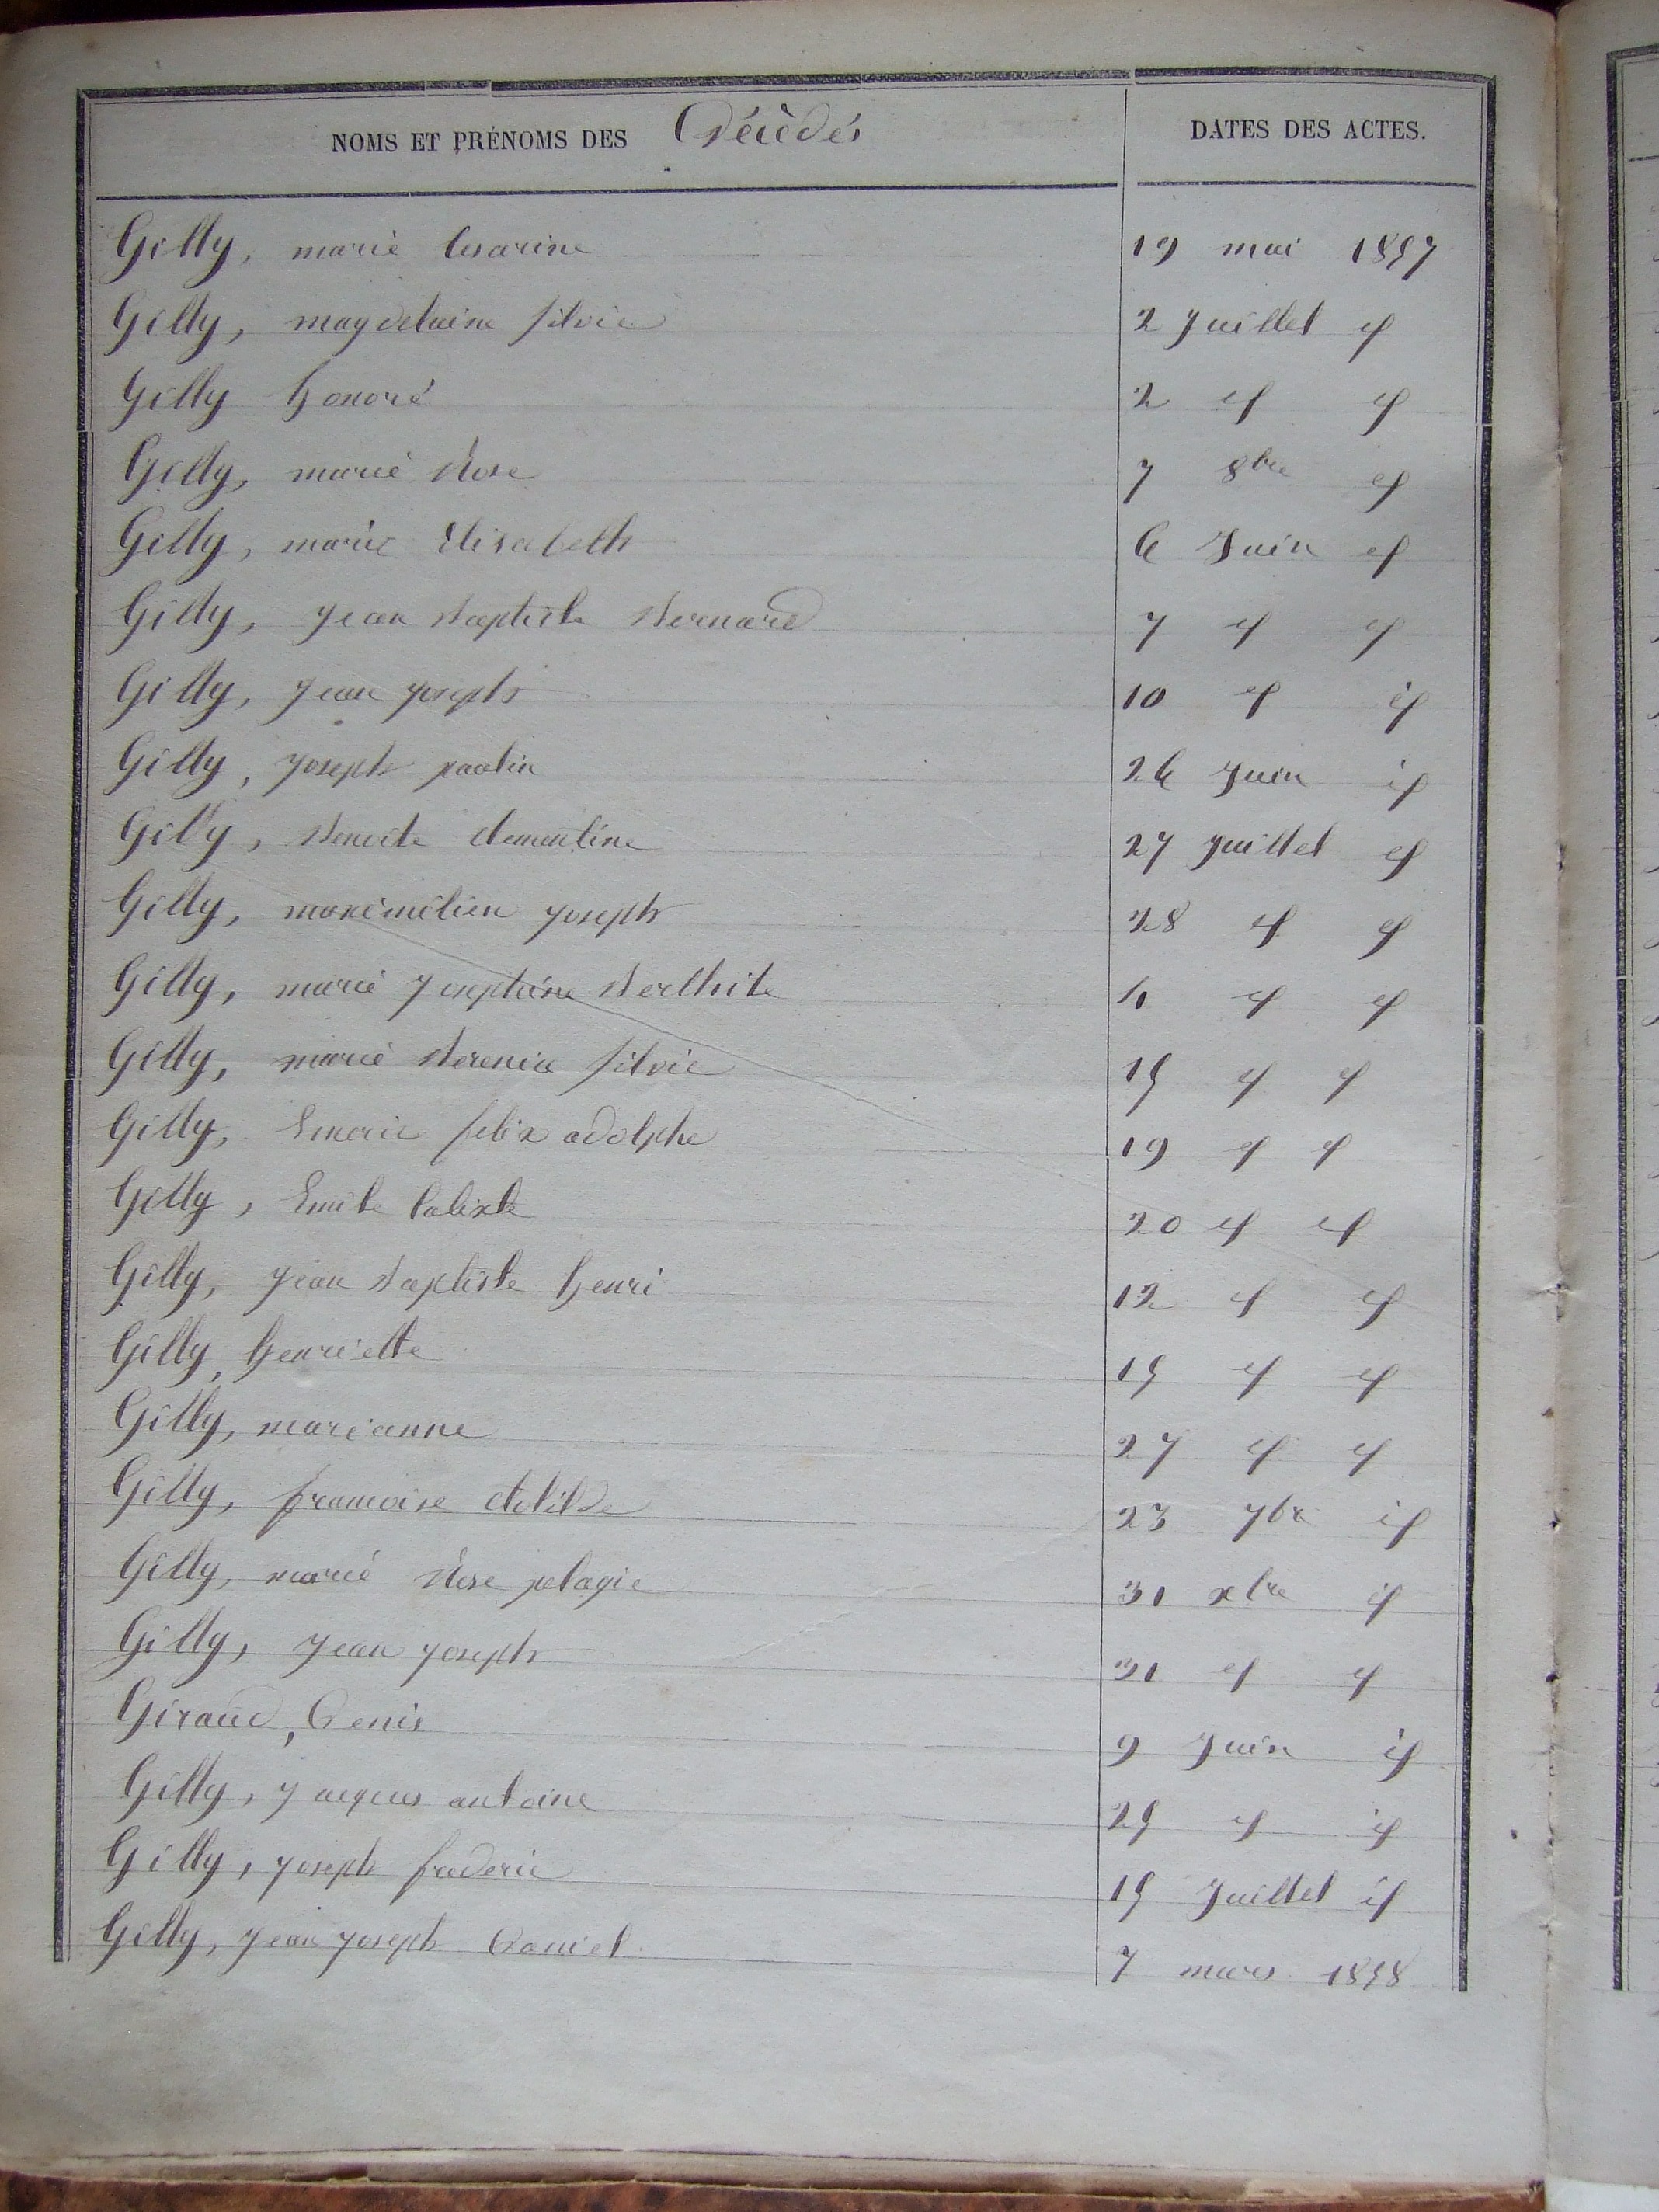 NOMS ET PRÉNOMS DES Décèdés DATES DES ACTES.
Gilly, marie Cesarine 19 mai 1857
Gilly, magdelaine silvie 2 Juillet id
Gilly honoré 2 id id
Gilly, marie Rose 7 8bre id
Gilly, marie Elisabeth 6 Juin id
Gilly, Jean Baptiste Bernard 7 id id
Gilly, Jean Joseph 10 id id
Gilly, Joseph paulin 26 Juin id
Gilly, Benoite clementine 27 Juillet id
Gilly, maximilien Joseph 28 id id
Gilly, marie Josephine id id
Gilly, marie silvie 15 id id
Gilly, felix adolphe 19 id id
Gilly, Emile Calixte 20 id id
Gilly, Jean Baptiste henri 12 id id
Gilly, henriette 15 id id
Gilly, marianne 27 id id
Gilly, francoise clotilde 23 7bre id
Gilly, marie Rose pelagie 31 xbre id
Gilly, Jean Joseph 31 id id
Giraud, Denis 9 Juin id
Gilly, Jacques antoine 25 id id
Gilly, Joseph frederic 15 Juillet id
Gilly, Jean Joseph Daniel 7 mars 1858